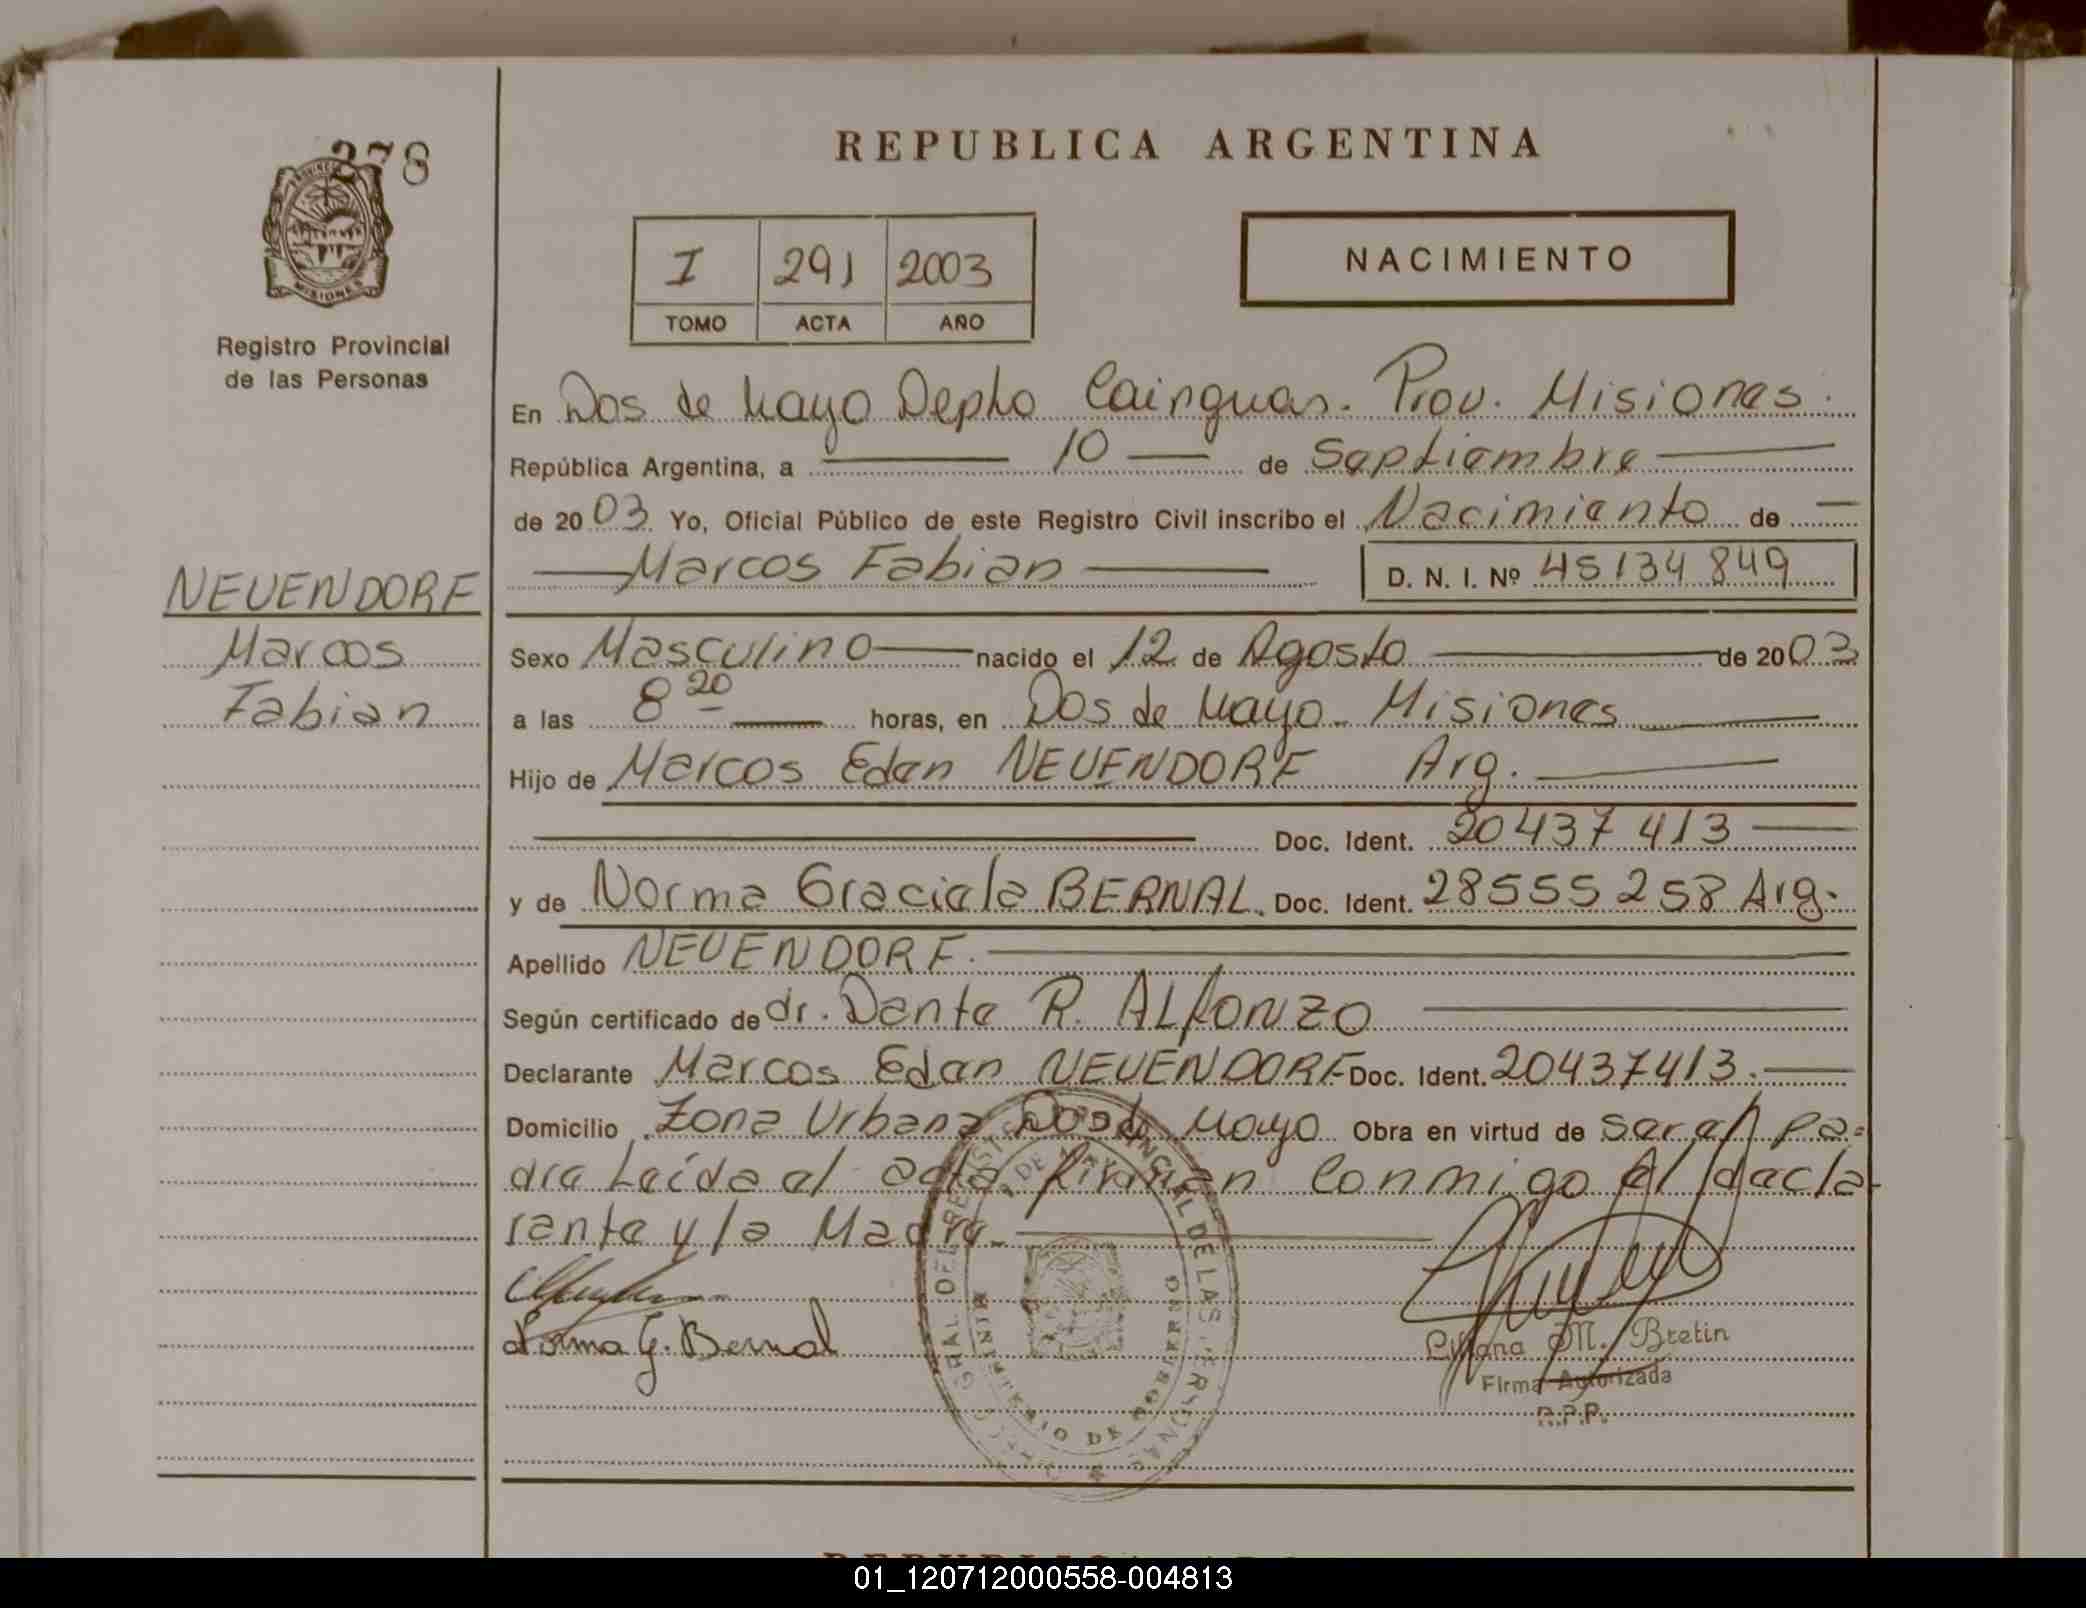 378
REPUBLICA ARGENTINA
I 291 2003
TOMO ACTA AÑO
NACIMIENTO
MISIONES
Registro Provincial
de las Personas
En Dos de Mayo Depto Cainguas. Prov. Misiones.
República Argentina, a 10 de Septiembre
de 2003 Yo, Oficial Público de este Registro Civil inscribo el Nacimiento de
Marcos Fabian D. N. I. Nº 45134849
NEUENDORF
Marcos
Fabian
Sexo Masculino nacido el 12 de Agosto de 2003
a las 8 20 horas, en Dos de Mayo. Misiones
Hijo de Marcos Edan NEUENDORF Arg.
Doc. Ident. 20437413
y de Norma Graciela BERNAL. Doc. Ident. 28555258 Arg.
Apellido NEUENDORF.
Según certificado de dr. Dante R. ALfONZO
Declarante Marcos Edan NEUENDORF Doc. Ident. 20437413.
Domicilio Zona Urbana Dos de Mayo Obra en virtud de ser el pa-
dre Leída el acta firman conmigo el decla-
rante y la Madre.
Norma G. Bernal
Liliana M. Bretin
Firma Autorizada
R.P.P.
MINISTERIO DE GOBIERNO
01_120712000558-004813